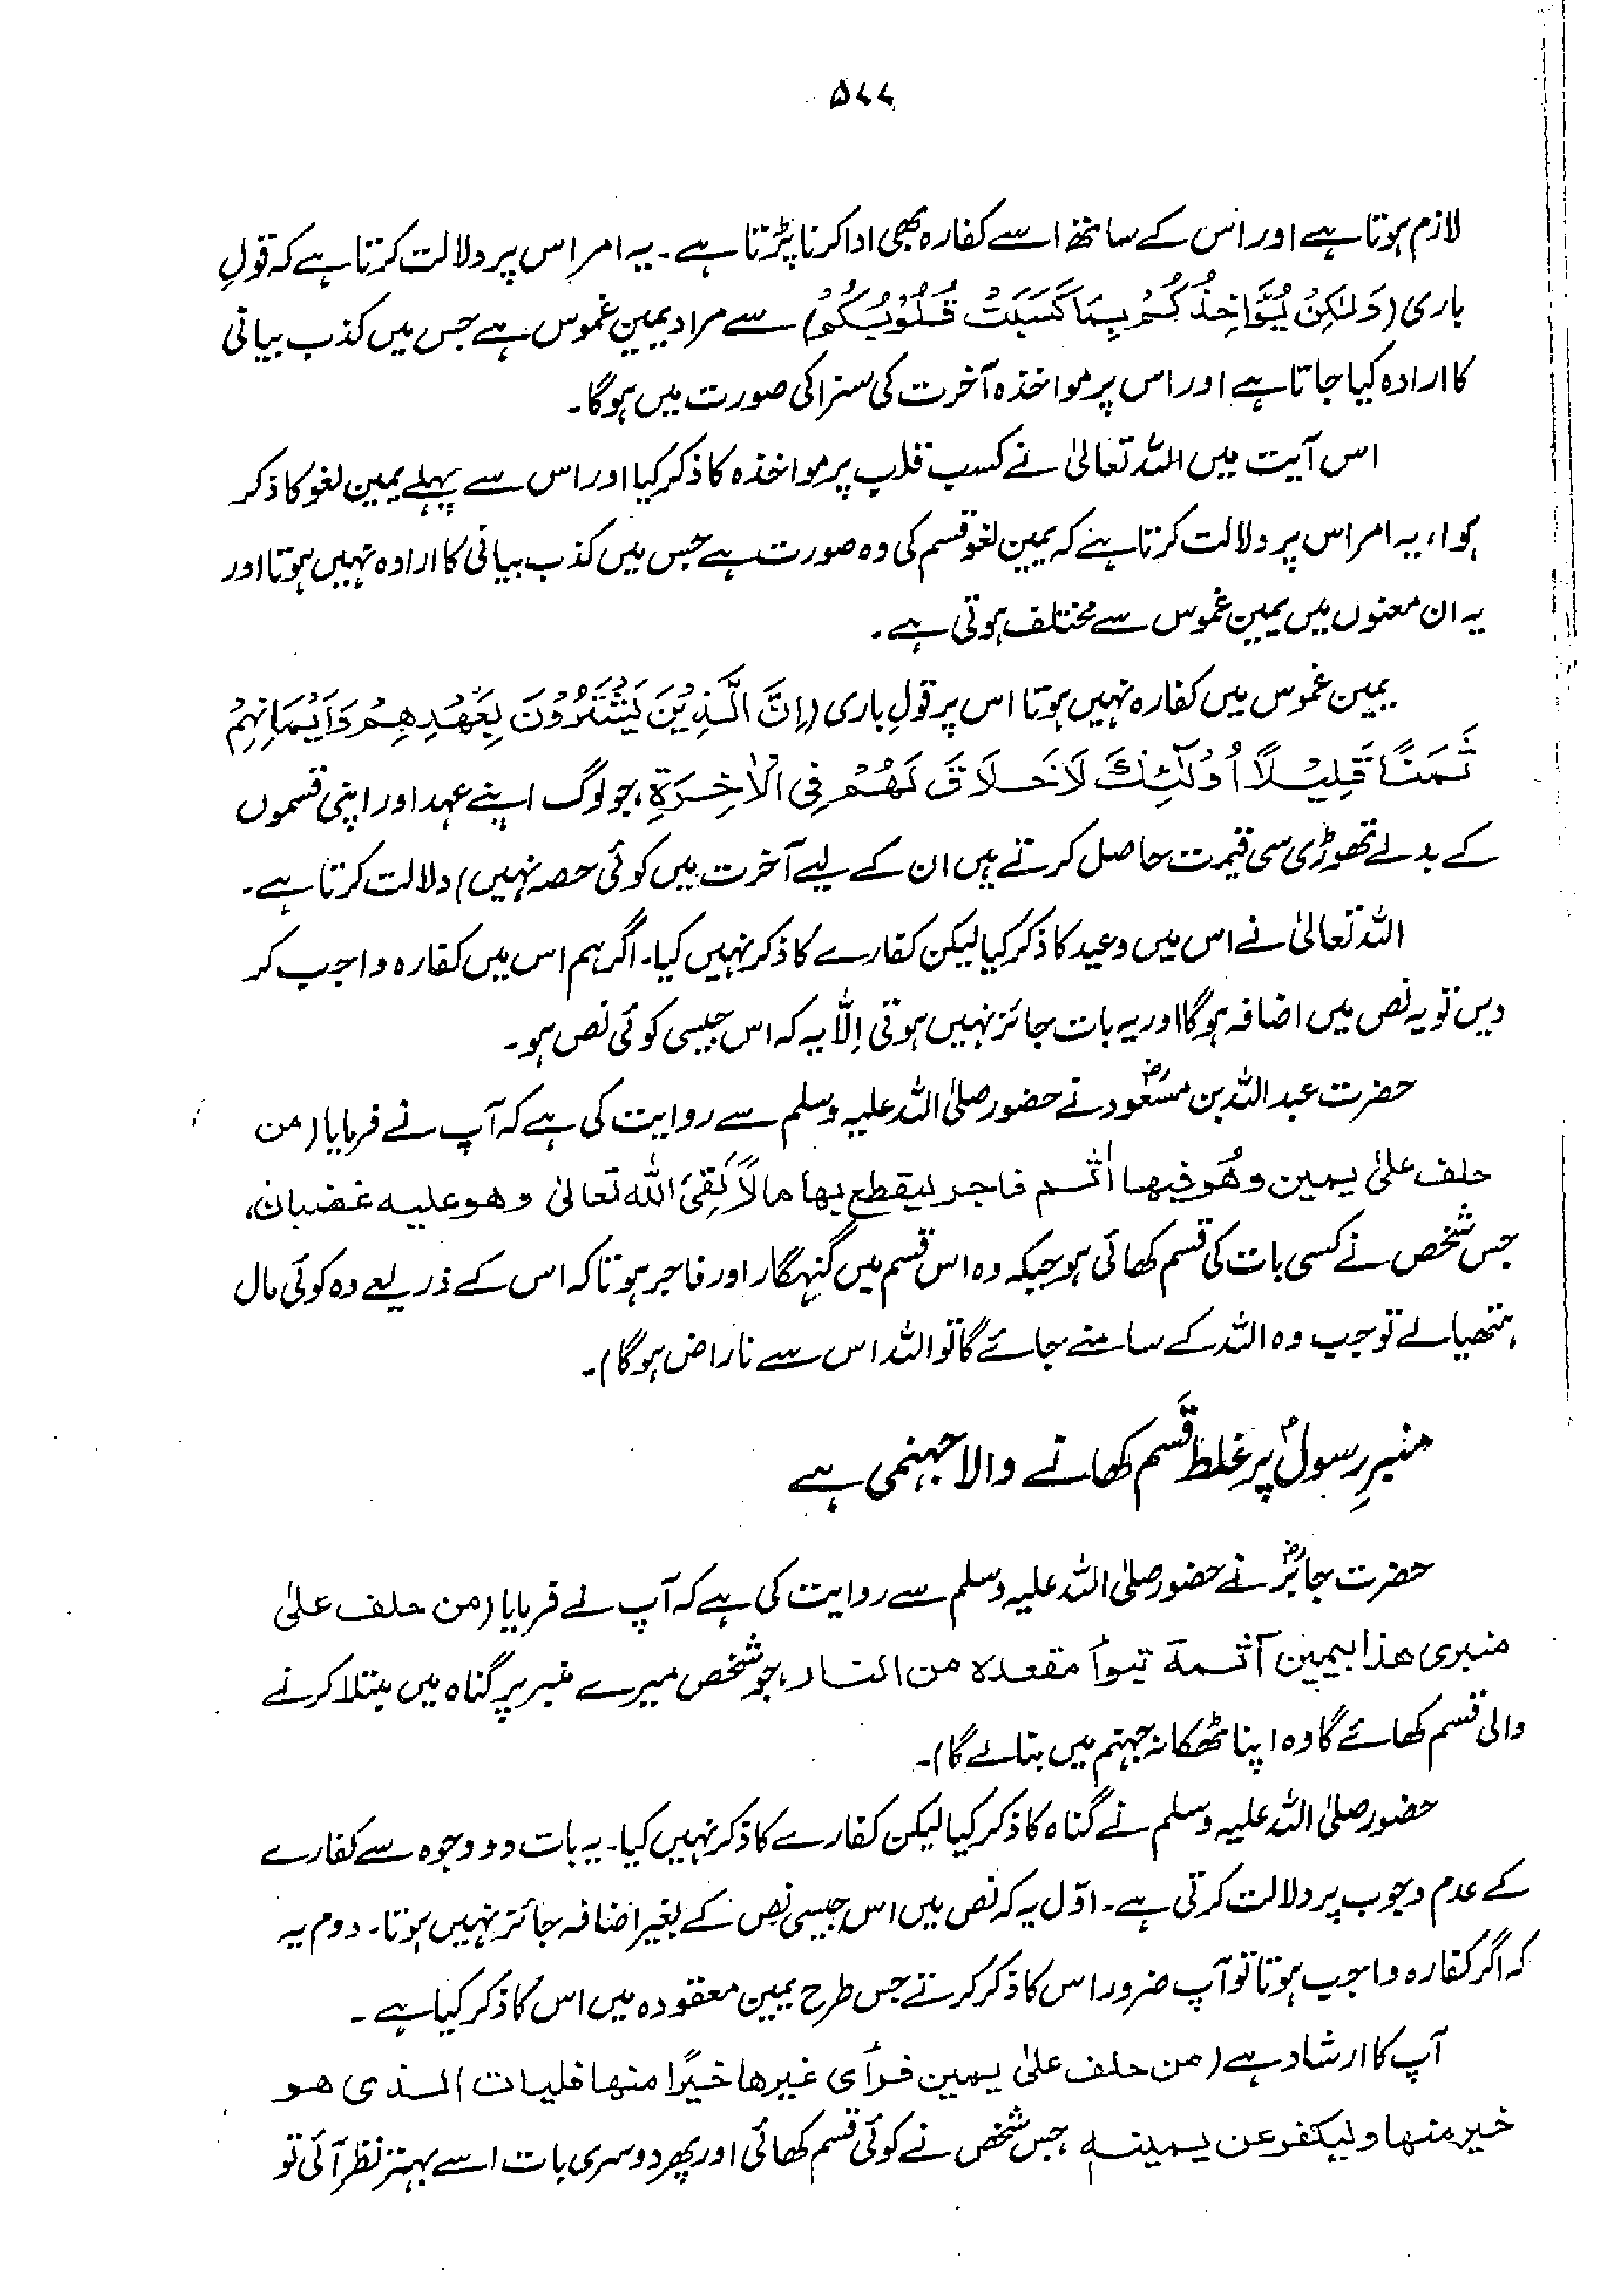 ۵۷۷
لازم ہوتا ہے اور اس کے ساتھ اسے کفارہ بھی ادا کرنا پڑتا ہے۔ یہ امر اس پر دلالت کرتا ہے کہ قولِ
باری (وَلٰکِنْ یُّؤَاخِذُکُمْ بِمَا کَسَبَتْ قُلُوْبُکُمْ) سے مراد یمین غموس ہے جس میں کذب بیانی
کا ارادہ کیا جاتا ہے اور اس پر مواخذہ آخرت کی سزا کی صورت میں ہوگا۔
اس آیت میں اللہ تعالیٰ نے کسب قلب پر مواخذہ کا ذکر کیا اور اس سے پہلے یمین لغو کا ذکر
ہوا، یہ امر اس پر دلالت کرتا ہے کہ یمین لغو قسم کی وہ صورت ہے جس میں کذب بیانی کا ارادہ نہیں ہوتا اور
یہ ان معنوں میں یمین غموس سے مختلف ہوتی ہے۔
یمین غموس میں کفارہ نہیں ہوتا اس پر قولِ باری (اِنَّ الَّذِیْنَ یَشْتَرُوْنَ بِعَهْدِهِمْ وَاَیْمَانِهِمْ
ثَمَنًا قَلِیْلًا اُولٰٓئِكَ لَا خَلَاقَ لَهُمْ فِی الْاٰخِرَةِ، جو لوگ اپنے عہد اور اپنی قسموں
کے بدلے تھوڑی سی قیمت حاصل کرتے ہیں ان کے لیے آخرت میں کوئی حصہ نہیں) دلالت کرتا ہے۔
اللہ تعالیٰ نے اس میں وعید کا ذکر کیا لیکن کفارے کا ذکر نہیں کیا۔ اگر ہم اس میں کفارہ واجب کر
دیں تو یہ نص میں اضافہ ہوگا اور یہ بات جائز نہیں ہوتی اِلّا یہ کہ اس جیسی کوئی نص ہو۔
حضرت عبد اللہ بن مسعودؓ نے حضور صلی اللہ علیہ وسلم سے روایت کی ہے کہ آپ نے فرمایا (من
حلف علیٰ یمین وھُو فیھا اٰثم فاجر لیقطع بھا مالًا لَقِیَ اللّٰہ تعالیٰ وھو علیہ غضبان،
جس شخص نے کسی بات کی قسم کھائی ہو جبکہ وہ اس قسم میں گنہگار اور فاجر ہو تاکہ اس کے ذریعے وہ کوئی مال
ہتھیالے تو جب وہ اللہ کے سامنے جائے گا تو اللہ اس سے ناراض ہوگا)۔
منبرِ رسولؐ پر غلط قَسم کھانے والا جہنمی ہے
حضرت جابرؓ نے حضور صلی اللہ علیہ وسلم سے روایت کی ہے کہ آپ نے فرمایا (من حلف علیٰ
منبری ھذا بیمین آثمة تبوأ مقعدہ من النار، جو شخص میرے منبر پر گناہ میں مبتلا کرنے
والی قسم کھائے گا وہ اپنا ٹھکانہ جہنم میں بنالے گا)۔
حضور صلی اللہ علیہ وسلم نے گناہ کا ذکر کیا لیکن کفارے کا ذکر نہیں کیا۔ یہ بات دو وجوہ سے کفارے
کے عدم وجوب پر دلالت کرتی ہے۔ اوّل یہ کہ نص میں اس جیسی نص کے بغیر اضافہ جائز نہیں ہوتا۔ دوم یہ
کہ اگر کفارہ واجب ہوتا تو آپ ضرور اس کا ذکر کرتے جس طرح یمین معقودہ میں اس کا ذکر کیا ہے۔
آپ کا ارشاد ہے (من حلف علیٰ یمین فرأی غیرھا خیرًا منھا فلیات الذی ھو
خیر منھا ولیکفر عن یمینہ، جس شخص نے کوئی قسم کھائی اور پھر دوسری بات اسے بہتر نظر آئی تو